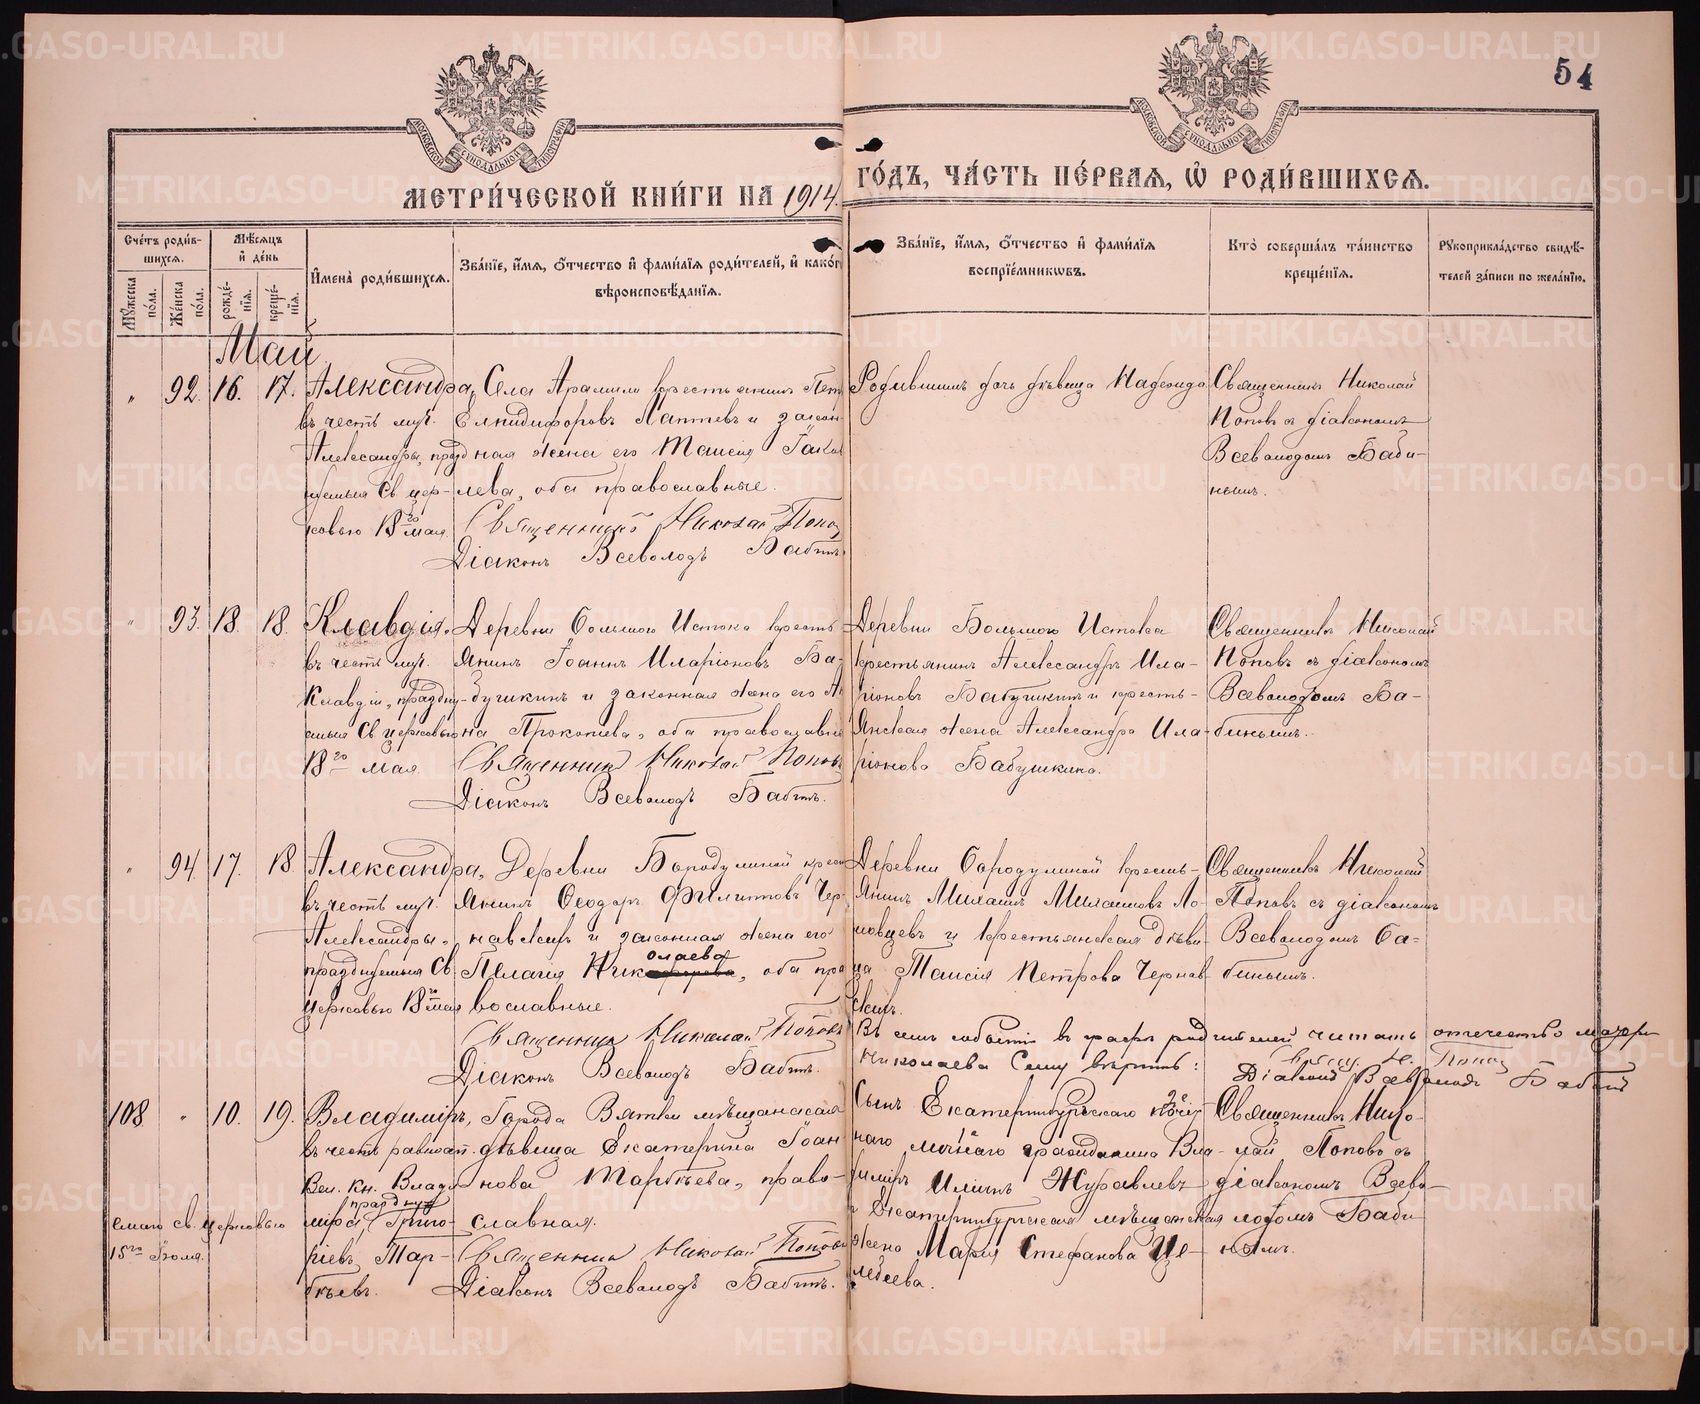 54
МЕТРИ́ЧЕСКОЙ КНИ́ГИ НА 1914 ГО́ДЪ, ЧА́СТЬ ПЕ́РВАЯ, Ѡ РОДИ́ВШИХСЯ.
Сче́тъ роди́вшихся.
Мѣ́сяцъ и҆ де́нь
И҆мена̀ роди́вшихся.
Зва́нїе, и҆́мя, ѻ҆́тчество и҆ фами́лїя роди́телей, и҆ како́гѡ
вѣроисповѣ́данїя.
Зва́нїе, и҆́мя, ѻ҆́тчество и҆ фами́лїя
воспрїе́мникѡвъ.
Кто̀ соверша́лъ та́инство
креще́нїя.
Рꙋкоприкла́дство свидѣ́-
телей за́писи по жела́нїю.
Мꙋ́жеска по́ла.
Же́нска по́ла.
рожде́-нїя.
креще́-нїя.
Май
" 92. 16. 17.
Александра,
въ честь муч.
Александры, празд
нуемыя Св цер-
ковью 18го мая.
Села Арамили крестьянинъ Пет
Елпидифоровъ Лаптевъ и закон-
ная жена его Таисія Іаков
лева, оба православные.
Священникъ Николай Попов
Діаконъ Всеволодъ Бабинъ
Родившимъ дочь дѣвица Надежда
Священникъ Николай
Поповъ съ діакономъ
Всеволодомъ Баби-
нымъ.
" 93. 18. 18.
Клавдія,
въ честь муч.
Клавдіи, праздну-
емыя Св церковью
18го мая.
Деревни Большого Истока кресть
янинъ Іоаннъ Иларіоновъ Ба-
бушкинъ и законная жена его Ан
на Прокопіева, оба православны
Священник Николай Поповъ
Діаконъ Всеволодъ Бабинъ.
Деревни Большого Истока
крестьянинъ Александръ Ила-
ріоновъ Бабушкинъ и кресть-
янская жена Александра Ила-
ріонова Бабушкина.
Священникъ Николай
Поповъ съ діакономъ
Всеволодомъ Ба-
бинымъ.
" 94 17. 18.
Александра,
въ честь муч.
Александры,
празднуемыя Св
церковью 18го мая
Деревни Бородулиной крест
янинъ Ѳеодоръ Филипповъ Чер-
навскихъ и законная жена его
Пелагія Николаева, оба пра
вославные.
Священник Николай Поповъ
Діаконъ Всеволодъ Бабинъ.
Деревни Бородулиной кресть-
янинъ Михаилъ Михаиловъ Ло-
ховцевъ и крестьянская дѣви
ца Таисія Петрова Чернав
скихъ.
Священникъ Николай
Поповъ съ діакономъ
Всеволодомъ Ба-
бинымъ.
Въ семъ событіи въ графѣ родителей читать отчество матери
Николаева Сему вѣрить:
Н. Попов
Діаконъ Всеволодъ Бабинъ
108 " 10. 19.
Владиміръ,
въ честь равноап.
Вел. кн. Влади
міра, праздну
емаго св. церковью
15го Іюля.
Григо-
ріевъ Тар-
бѣевъ.
Города Вятки мѣщанская
дѣвица Екатерина Іоан
нова Тарбѣева, право-
славная.
Священник Николай Поповъ
Діаконъ Всеволодъ Бабинъ.
Сынъ Екатеринбургскаго почет
наго личнаго гражданина Вла-
диміръ Ильинъ Журавлевъ
и Екатеринбургская мѣщанская
жена Марія Стефанова Це-
лебеева.
Священникъ Нико-
лай Поповъ съ
діакономъ Всево-
лодомъ Баби
нымъ.
METRIKI.GASO-URAL.RU